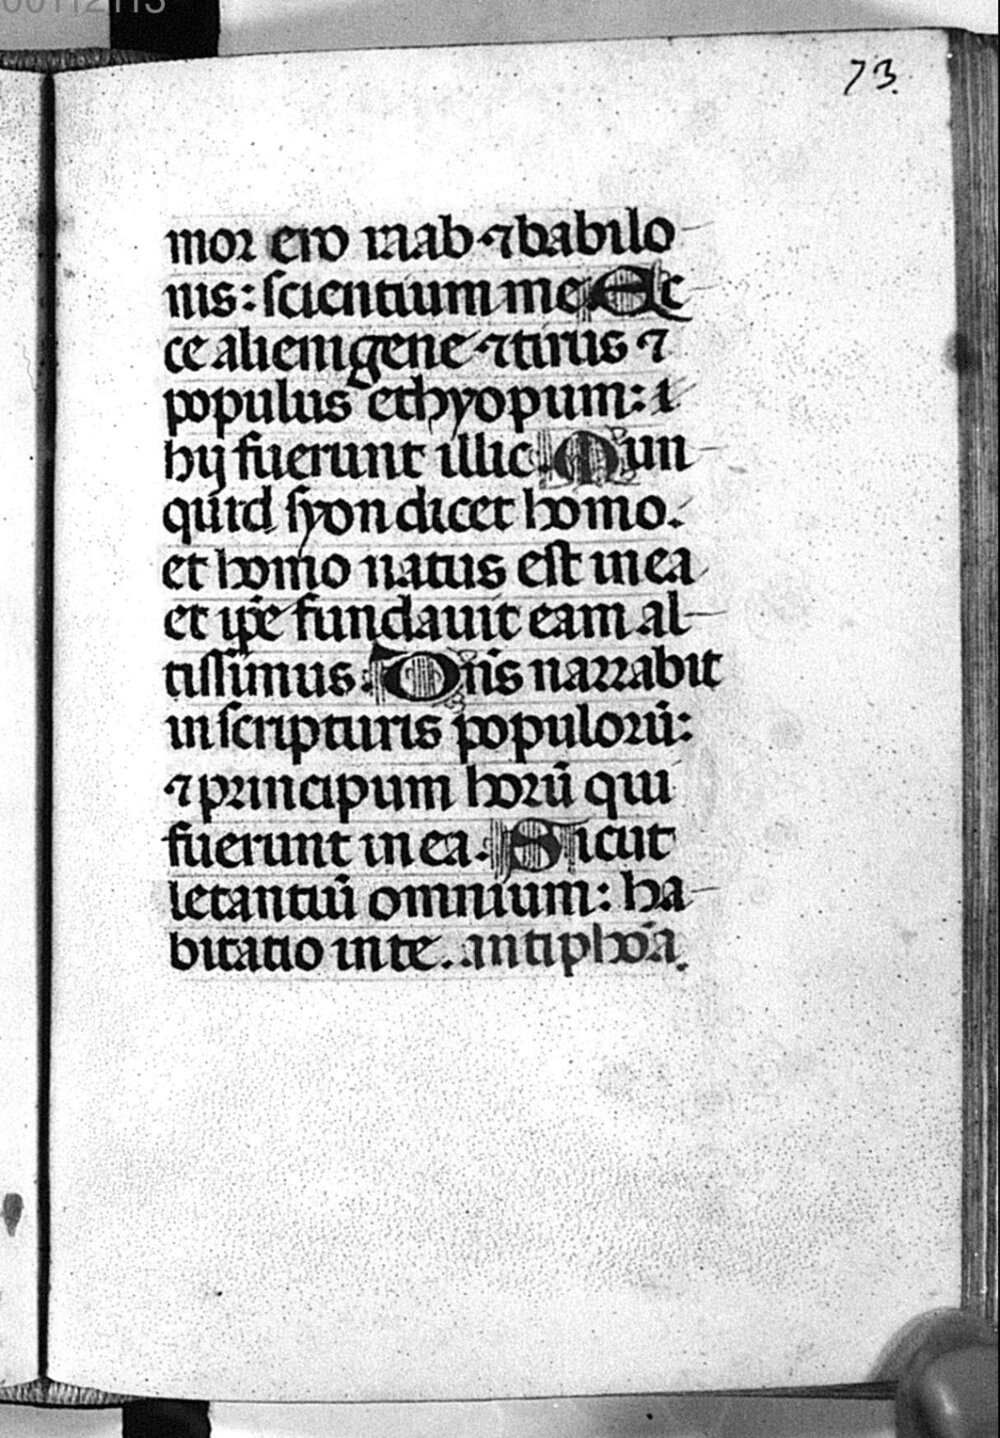 00112113
73.
mor ero raab ⁊ babilo
nis: scientium me Ec
ce alienigene ⁊ tirus ⁊
populus ethyopum: i
hij fuerunt illic. Nun
quid syon dicet homo.
et homo natus est in ea
et ip̄e fundauit eam al
tissimus: Dn̄s narrabit
in scripturis populorū:
⁊ principum horū qui
fuerunt in ea. Sicut
letantiū omnium: ha
bitatio in te. antiphōa.